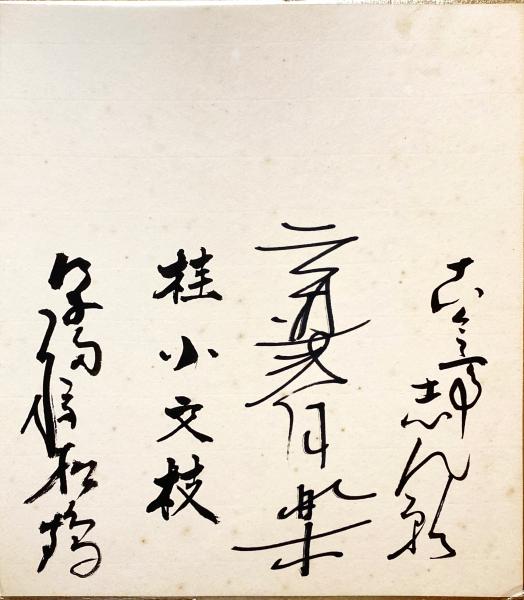 古今亭志ん朝
三遊亭円楽
桂小文枝
笑福亭松鶴